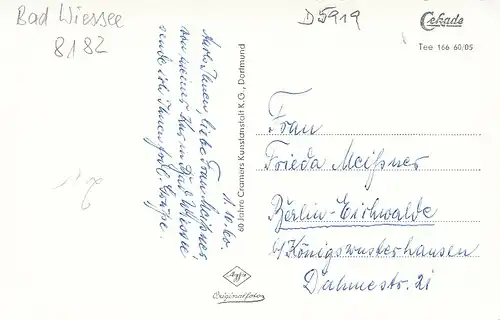 Bad Wiessee
8182
D5919
Cekade
Tee 166 60/05
1. 10. 60.
Auch Ihnen, liebe Frau Meißner,
von meiner Kur in Bad Wiessee
sende ich Ihnen frdl. Grüße.
60 Jahre Cramers Kunstanstalt K.G., Dortmund
Agfa
Originalfoto
Frau
Frieda Meißner
Berlin-Eichwalde
b/Königswusterhausen
Dahmestr. 21